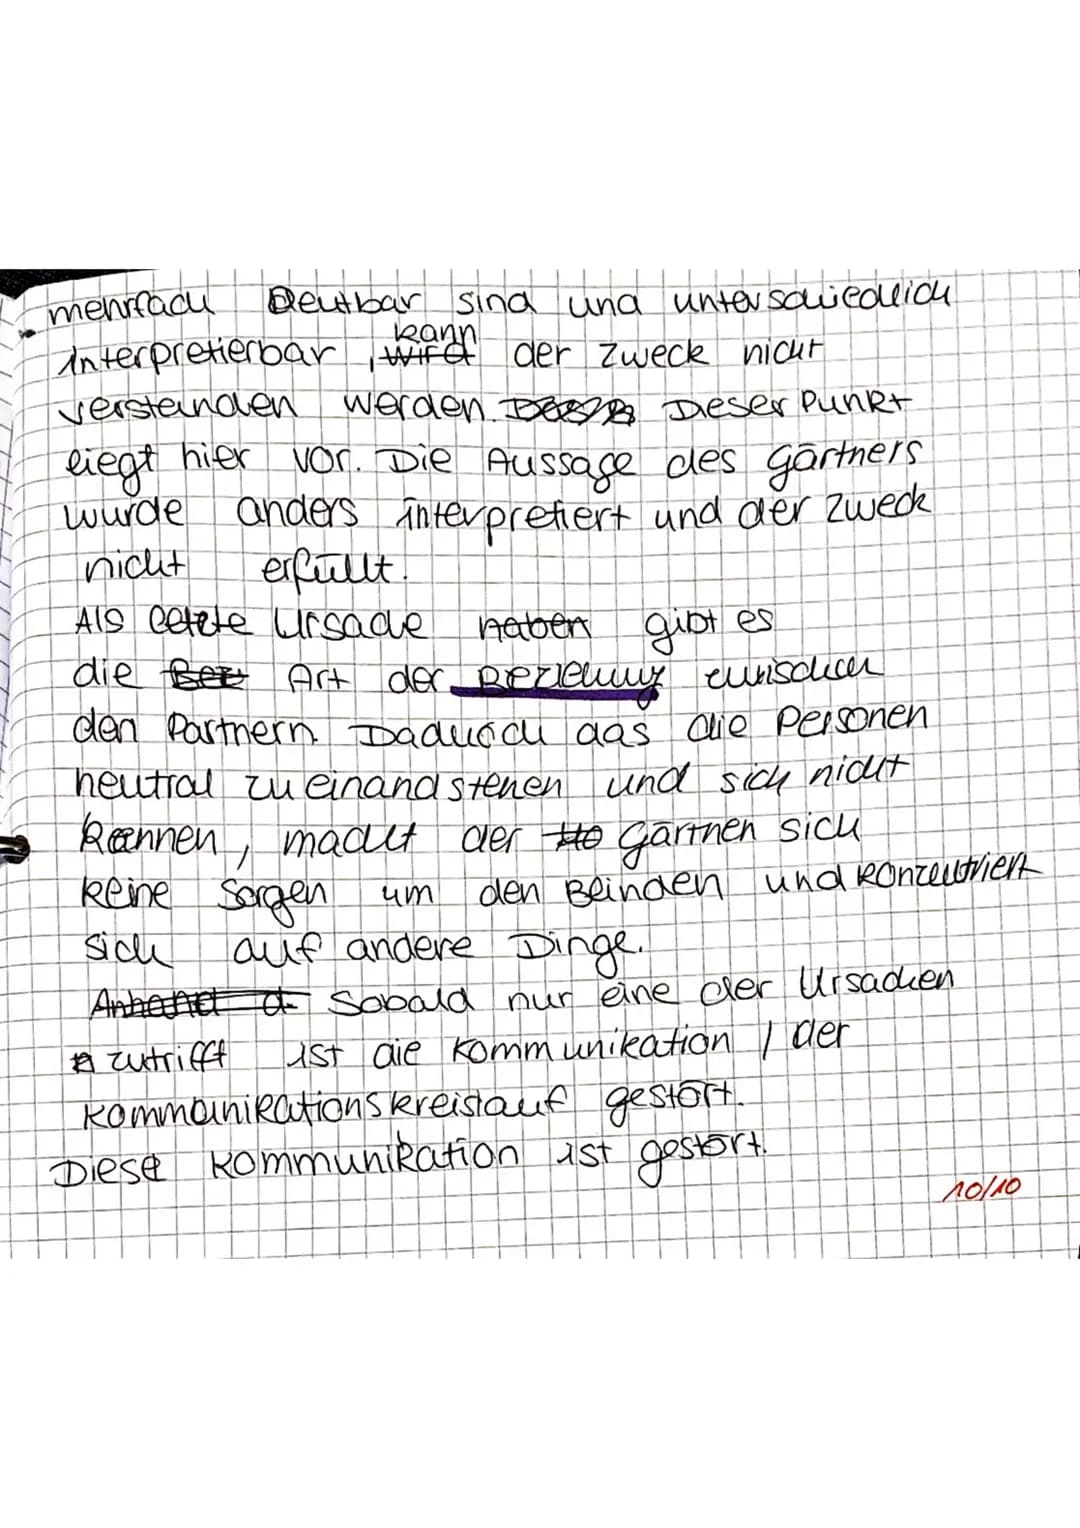 mehrfach Deutbar sind und unterschiedlich
interpretierbar, wird kann der Zweck nicht
verstanden werden. Dieser Punkt
liegt hier vor. Die Aussage des Gärtners
wurde anders interpretiert und der Zweck
nicht erfüllt.
Als letzte Ursache haben gibt es
die Bez Art der Beziehung zwischen
den Partnern. Dadurch das die Personen
neutral zu einand stehen und sich nicht
kennen, macht der Gärtnen sich
keine Sorgen um den Blinden und konzentriert
sich auf andere Dinge.
Anhand d. Sobald nur eine der Ursachen
zutrifft ist die Kommunikation / der
Kommunikationskreislauf gestört.
Diese Kommunikation ist gestört.
10/10